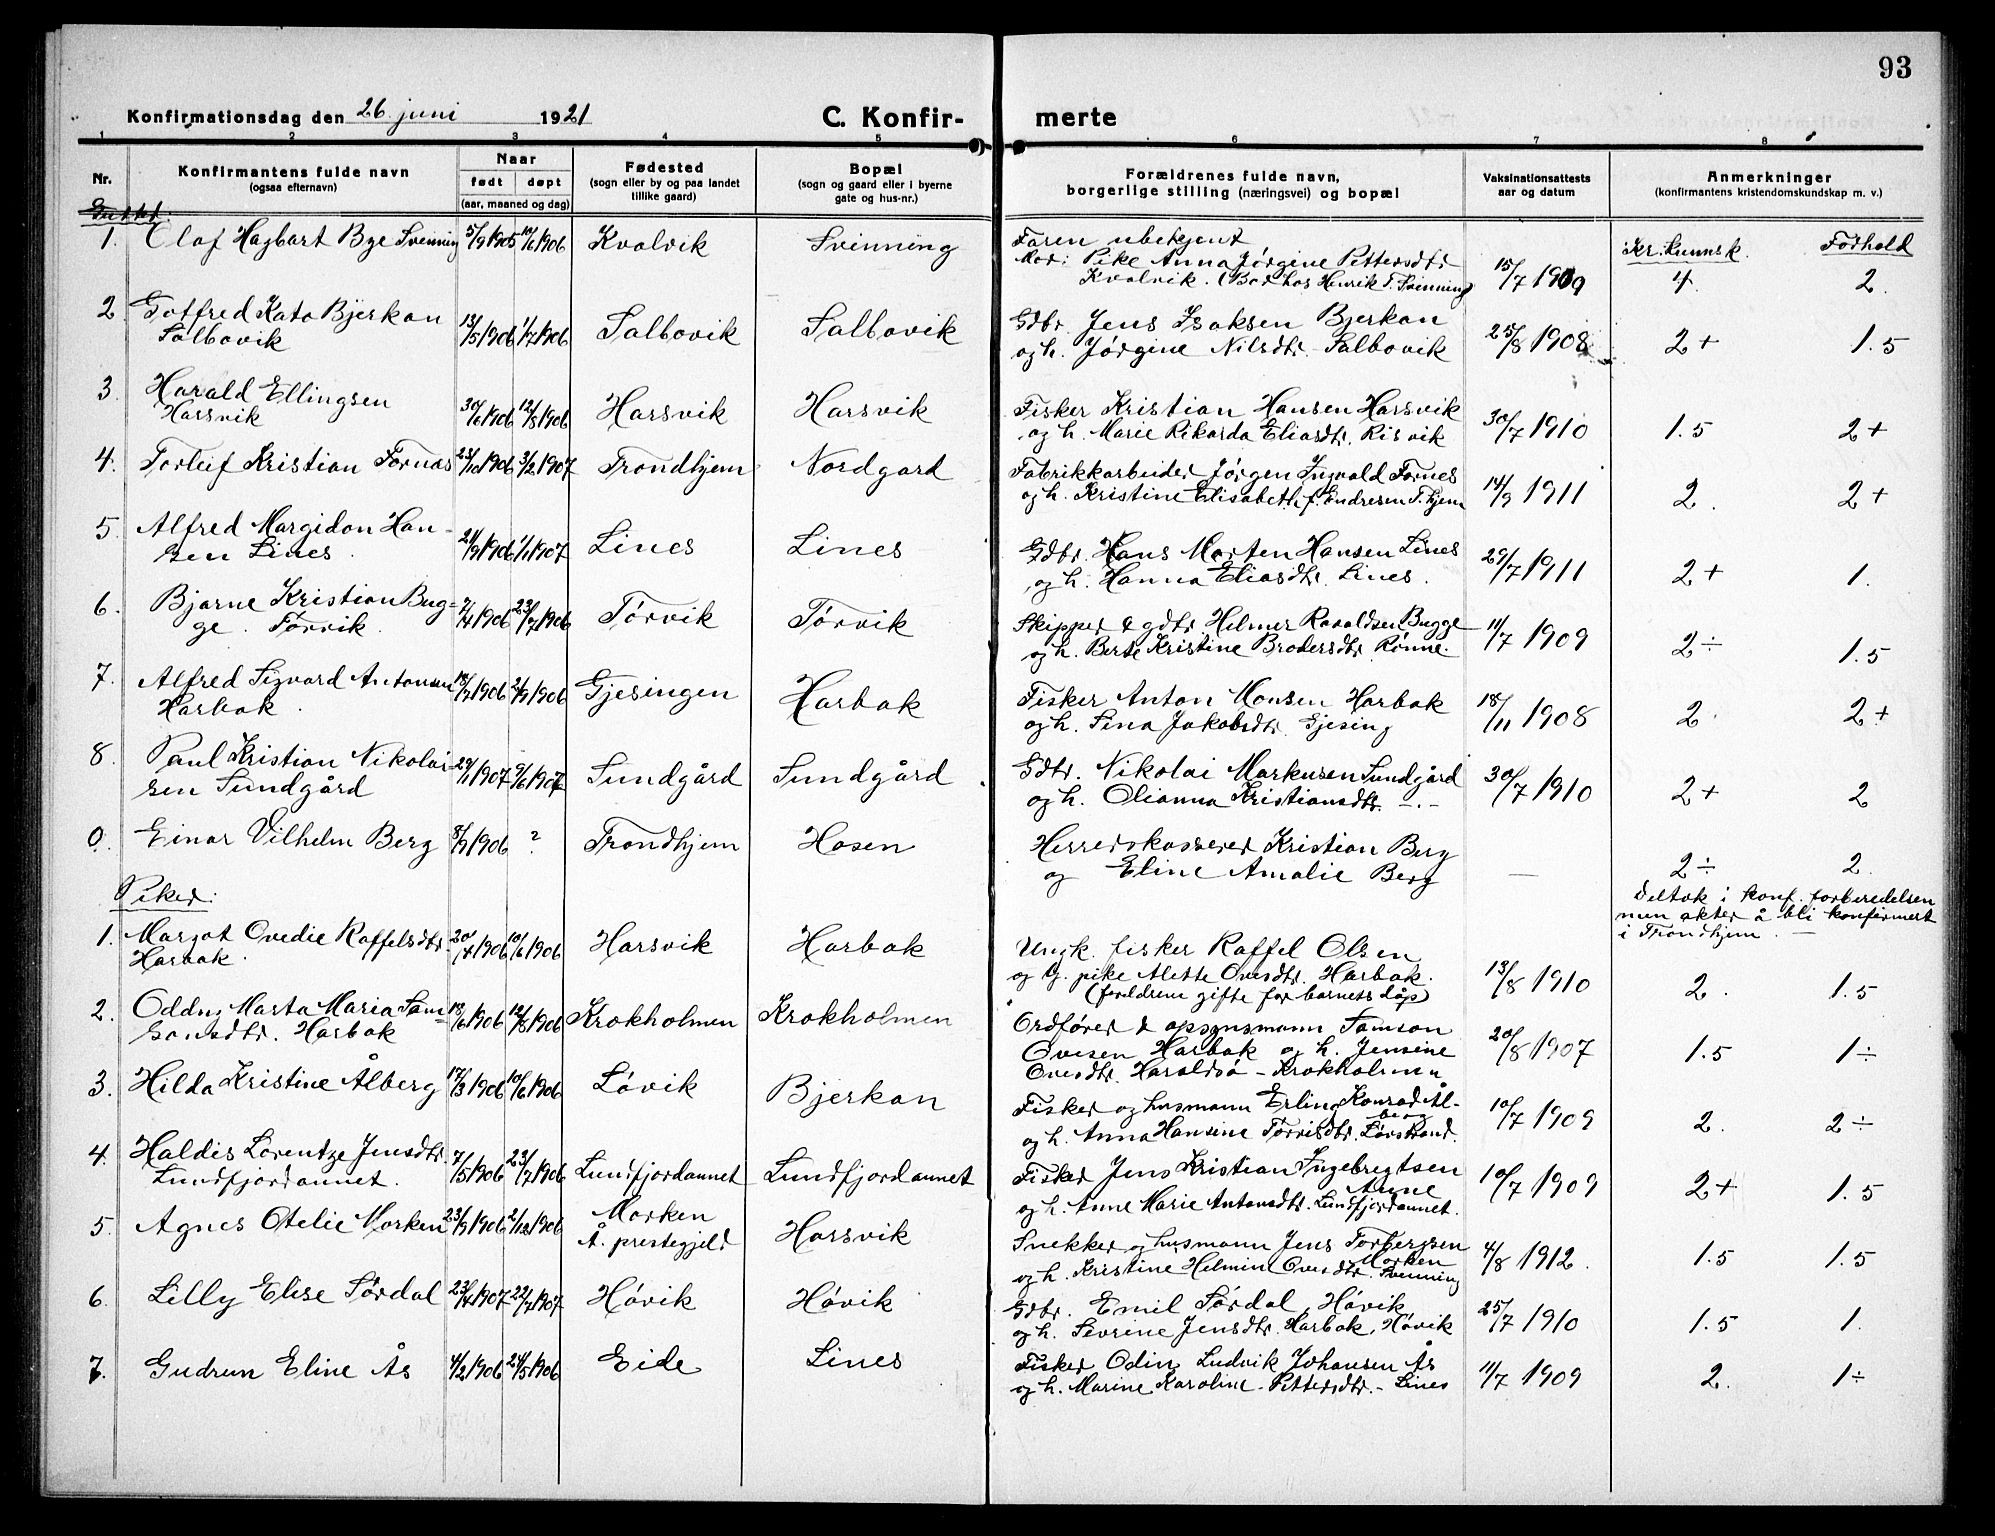 93
Konfirmationsdag den 26 juni 1921 C. Konfir- merte
1 2 3 4 5 6 7 8
Nr. Konfirmantens fulde navn (ogsaa efternavn) Naar født døpt (aar, maaned og dag) Fødested (sogn eller by og paa landet tillike gaard) Bopæl (sogn og gaard eller i byerne gate og hus-nr.) Forældrenes fulde navn, borgerlige stilling (næringsvei) og bopæl Vaksinationsattests aar og datum Anmerkninger (konfirmantens kristendomskundskap m. v.)
Gutter:
Kr. kunnsk. Forhold
1. Olaf Hagbart Bye Svenning 5/9 1905 10/6 1906 Kvalvik Svinning Faren ubekjent
Mor: Pike Anna Jørgine Pettersdtr
Kvalvik. (Bor hos Henrik T. Svinning) 15/7 1909 4. 2.
2 Gotfred Kato Bjerkan
Salbovik 13/5 1906 1/7 1906 Salbovik Salbovik Gdbr. Jens Isaksen Bjerkan
og h. Jørgine Nilsdtr. Salbovik 25/8 1908 2+ 1.5
3. Harald Ellingsen
Harsvik 30/6 1906 12/8 1906 Harsvik Harsvik Fisker Kristian Hansen Harsvik
og h. Marie Rikarda Eliasdtr. Risvik 30/7 1910 1.5 2+
4. Torleif Kristian Fornes 23/10 1906 3/2 1907 Trondhjem Nordgard Fabrikkarbeider Jørgen Ingvald Fornes
og h. Kristine Elisabeth f. Endresen T.hjem 14/9 1911 2. 2+
5. Alfred Margidon Han-
sen Lines. 21/9 1906 1/1 1907 Lines Lines Gdbr. Hans Morten Hansen Lines
og h. Hanna Eliasdtr. Lines. 29/7 1911 2+ 1.
6. Bjarne Kristian Bug-
ge. Tørvik. 7/4 1906 23/7 1906 Tørvik Tørvik Skipper & gdbr. Helmer Roaldsen Bugge
og h. Berte Kristine Brodersdtr. Rønne. 11/7 1909 2÷ 1.5
7. Alfred Sigvard Antonsen
Harbak. 18/7 1906 2/9 1906 Gjesingen Harbak Fisker Anton Monsen Harbak
og h. Sina Jakobsdtr. Gjesing 18/11 1908 2. 2+
8. Paul Kristian Nikolai-
sen Sundgård 29/1 1907 9/6 1907 Sundgård Sundgård Gdbr. Nikolai Markusen Sundgård
og h. Olianna Kristiansdtr. -.- 30/7 1910 2+ 2
0. Einar Vilhelm Berg 8/7 1906 ? Trondhjem Hosen Herredskasserer Kristian Berg
og Eline Amalie Berg — 2÷ 2.
Deltok i konf. forberedelsen
men akter å bli konfirmert
i Trondhjem. —
Piker:
1. Margot Ovedie Raffelsdtr.
Harbak. 20/4 1906 10/6 1906 Harsvik Harbak Ungk. fisker Raffel Olsen
og g. pike Alette Ovesdtr. Harbak.
(foreldrene gifte før barnets dåp) 13/8 1910 2. 1.5
2. Oddny Marta Maria Sam-
sonsdtr. Harbak 18/6 1906 12/8 1906 Krokholmen Krokholmen Ordfører & opsynsmann Samson
Ovesen Harbak og h. Jensine
Ovesdtr. Haraldsø - Krokholmen 20/8 1907 1.5 1÷
3. Hilda Kristine Ålberg 17/3 1906 10/6 1906 Løvik Bjerkan Fisker og husmann Erling Konrad Ål-
berg
og h. Anna Hansine Torrisdtr. Lørstrand. 10/7 1909 2. 2÷
4. Haldis Lorentze Jensdtr.
Lundfjordannet. 7/5 1906 23/7 1906 Lundfjordannet Lundfjordannet Fisker Jens Kristian Ingebregtsen
Aune
og h. Anne Marie Antonsdtr. Lundfjordannet. 10/7 1909 2+ 1.5
5. Agnes Otelie Morken 23/9 1906 2/12 1906 Morken
Å. prestegjeld Harsvik Snekker og husmann Jens Torbergsen
Morken
og h. Kristine Helmine Ovesdtr. Svenning 4/8 1912. 1.5 1.5
6. Lilly Elise Sørdal 23/4 1907 22/7 1907 Høvik Høvik Gdbr. Emil Sørdal, Høvik
og h. Sevrine Jensdtr. Harbak, Høvik 25/7 1910 1.5 1.
7. Gudrun Eline Ås 4/2 1906 24/5 1906 Eide Lines Fisker Odin Ludvik Johansen Ås
og h. Marine Karoline Pettersdtr. - Lines 11/7 1909 2. 1÷